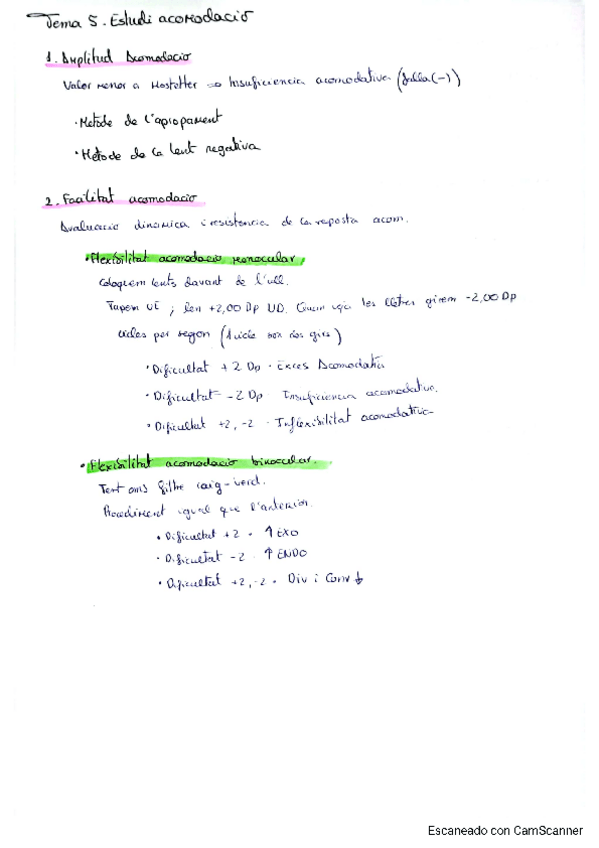 Tema 5. Estudi acomodació
1. Amplitud Acomodacio
Valor menor a Hostetter => Insuficiencia acomodativa (falla (-))
· Metode de l'apropament
· Mètode de la lent negativa
2. Facilitat acomodacio
Avaluacio dinamica i resistencia de la resposta acom.
· Flexibilitat acomodacio monocular,
Coloquem lents davant de l'ull.
Tapem UE ; lent +2,00 Dp UD. Quan vegi les lletres girem -2,00 Dp
cicles per segon (1 cicle son dos girs)
· Dificultat +2 Dp · Exces Acomodatiu
· Dificultat -2 Dp · Insuficiencia acomodativa.
· Dificultat +2, -2 · Inflexibilitat acomodativa
· Flexibilitat acomodacio binocular.
Test amb filtre vermell-verd.
Procediment igual que l'anterior.
· Dificultat +2 · ↑ EXO
· Dificultat -2 · ↑ ENDO
· Dificultat +2, -2 · Div i Conv ↓
Escaneado con CamScanner